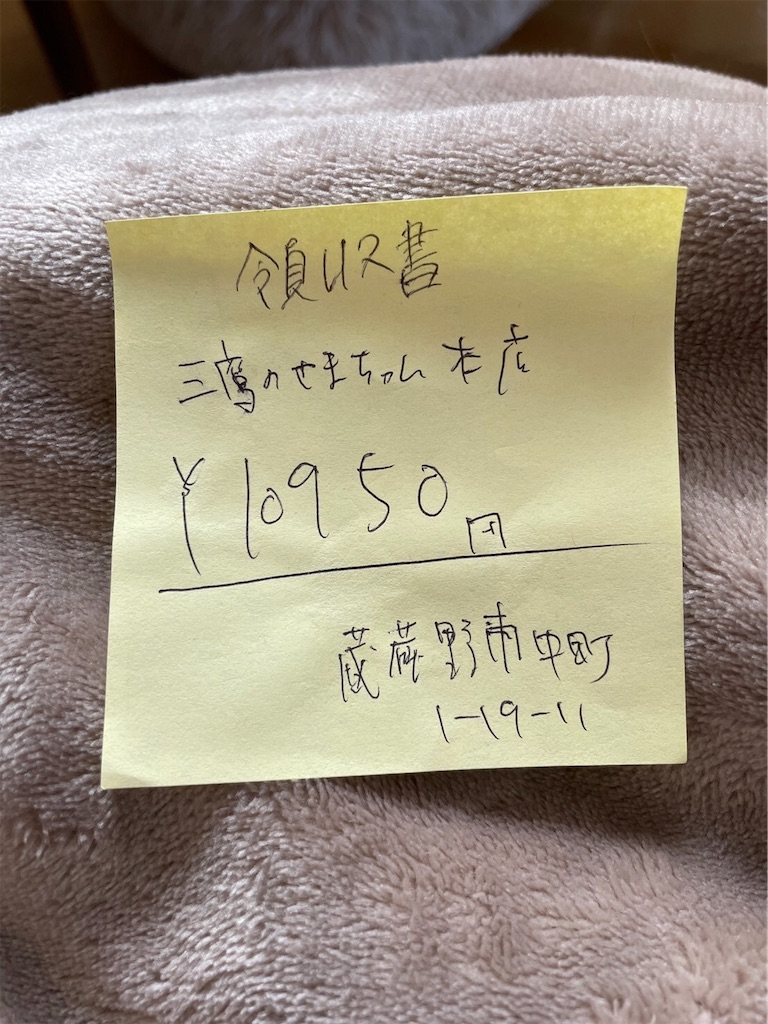 領収書
三鷹のせまちゃん 本店
¥10950円
蔵蔵野市中町
1-19-11